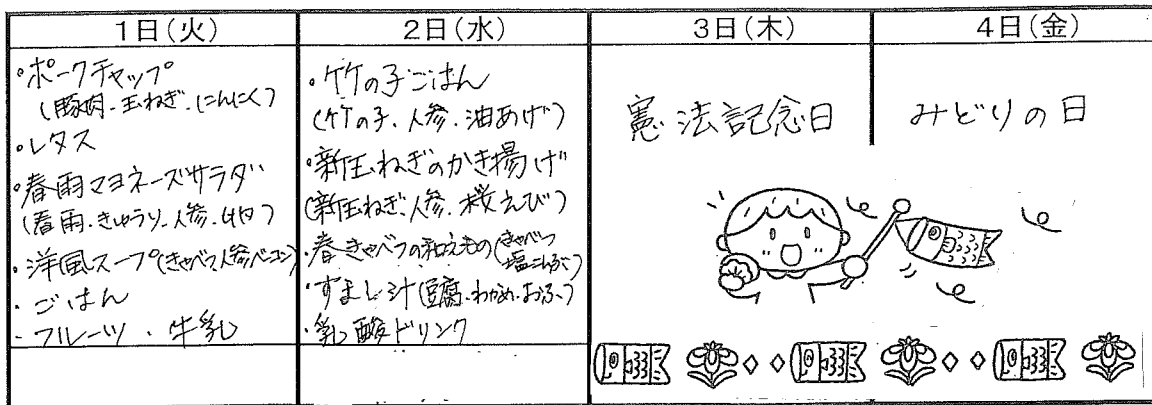 1日(火)
・ポークチャップ
(豚肉・玉ねぎ・にんにく)
・レタス
・春雨マヨネーズサラダ
(春雨・きゅうり・人参・ハム)
・洋風スープ(きゃべつ人参ベーコン)
・ごはん
・フルーツ・牛乳
2日(水)
・竹の子ごはん
(竹の子・人参・油あげ)
・新玉ねぎのかき揚げ
(新玉ねぎ・人参・桜えび)
・春きゃべつの和えもの(きゃべつ
塩こんぶ)
・すまし汁(豆腐・わかめ・おふ)
・乳酸ドリンク
3日(木)
憲法記念日
4日(金)
みどりの日